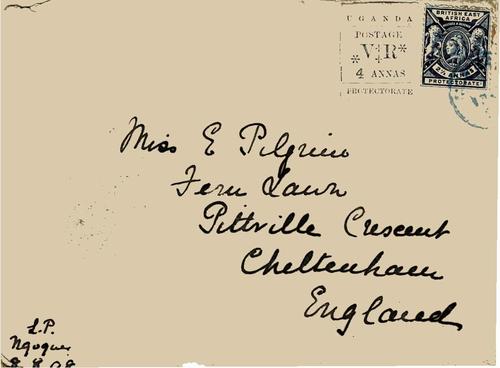 UGANDA
POSTAGE
V R
4 ANNAS
PROTECTORATE
BRITISH EAST
AFRICA
2½ ANNAS
PROTECTORATE
Miss E Pilgrim
Fern Lawn
Pittville Crescent
Cheltenham
England
L.P.